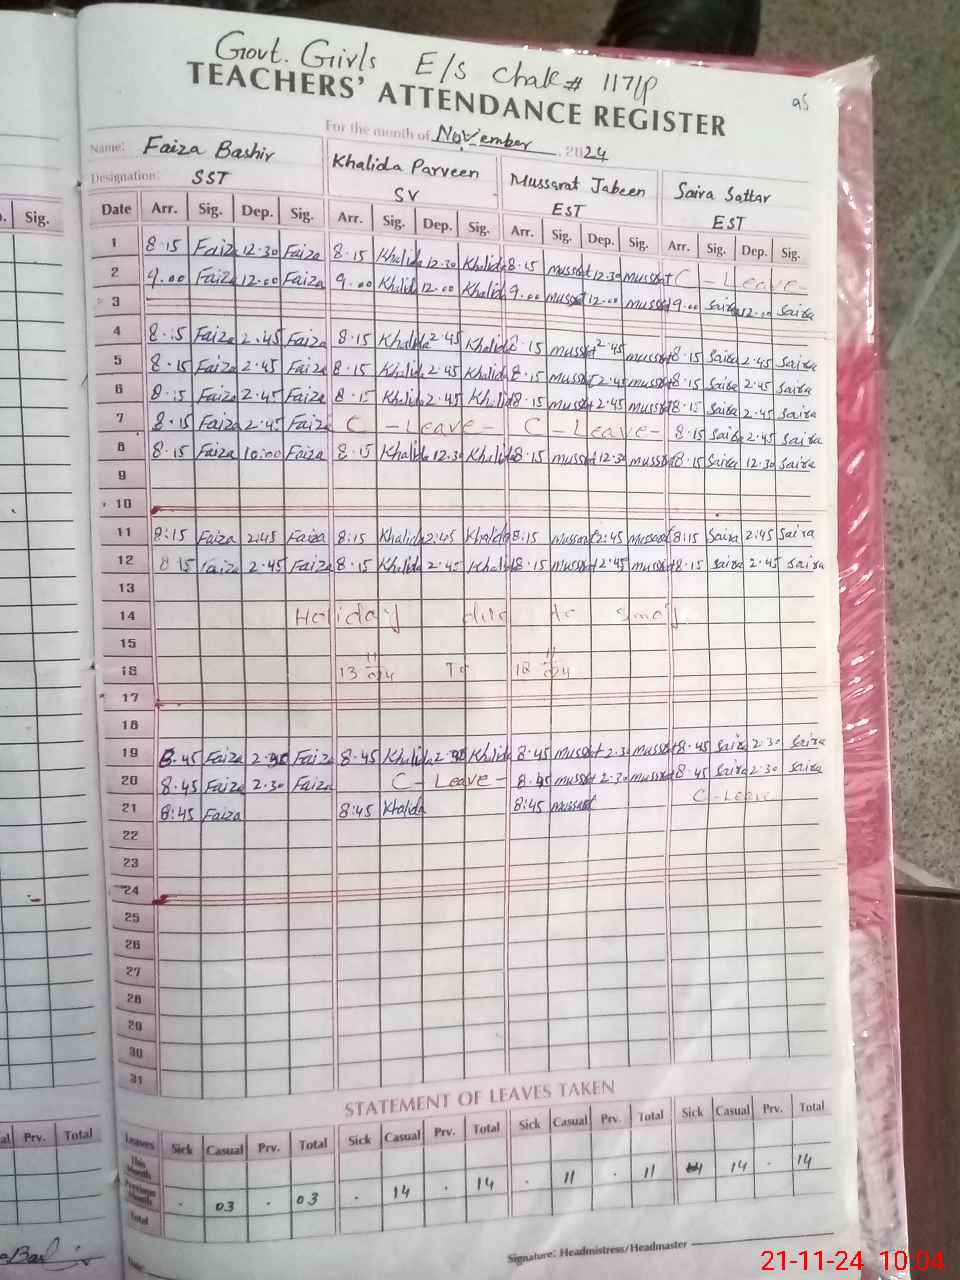 Govt. Girls E/S Chak # 117/P
TEACHERS' ATTENDANCE REGISTER
For the month of November, 2024
Name: Faiza Bashir Khalida Parveen Mussarat Jabeen Saira Sattar
Designation: SST SV EST EST
Sig. Date Arr. Sig. Dep. Sig. Arr. Sig. Dep. Sig. Arr. Sig. Dep. Sig. Arr. Sig. Dep. Sig.
1 8.15 Faiza 12.30 Faiza 8.15 Khalida 12.30 Khalida 8.15 mussarat 12.30 mussarat C - Leave -
2 9.00 Faiza 12.00 Faiza 9.00 Khalida 12.00 Khalida 9.00 mussarat 12.00 mussarat 9.00 Saira 12.00 Saira
3
4 8.15 Faiza 2.45 Faiza 8.15 Khalida 2.45 Khalida 8.15 mussarat 2.45 mussarat 8.15 Saira 2.45 Saira
5 8.15 Faiza 2.45 Faiza 8.15 Khalida 2.45 Khalida 8.15 mussarat 2.45 mussarat 8.15 Saira 2.45 Saira
6 8.15 Faiza 2.45 Faiza 8.15 Khalida 2.45 Khalida 8.15 mussarat 2.45 mussarat 8.15 Saira 2.45 Saira
7 8.15 Faiza 2.45 Faiza C - Leave - C - Leave - 8.15 Saira 2.45 Saira
8 8.15 Faiza 10:00 Faiza 8.15 Khalida 12.30 Khalida 8.15 mussarat 12.30 mussarat 8.15 Saira 12.30 Saira
9
10
11 8:15 Faiza 2:45 Faiza 8:15 Khalida 2:45 Khalida 8:15 Mussarat 2:45 Mussarat 8:15 Saira 2:45 Saira
12 8.15 Faiza 2.45 Faiza 8.15 Khalida 2.45 Khalida 8.15 mussarat 2.45 mussarat 8.15 Saira 2.45 Saira
13
14 Holiday due to Smog
15
16 13 11/24 To 18 11/24
17
18
19 8.45 Faiza 2.30 Faiza 8.45 Khalida 2.30 Khalida 8.45 mussarat 2.30 mussarat 8.45 Saira 2.30 Saira
20 8.45 Faiza 2.30 Faiza C - Leave - 8.45 mussarat 2.30 mussarat 8.45 Saira 2.30 Saira
21 8:45 Faiza 8:45 Khalida 8:45 mussarat C - Leave
22
23
24
25
26
27
28
29
30
31
STATEMENT OF LEAVES TAKEN
Prv. Total Leaves Sick Casual Prv. Total Sick Casual Prv. Total Sick Casual Prv. Total Sick Casual Prv. Total
This Month
Previous Month . 03 . 03 . 14 . 14 . 11 . 11 14 . 14
Total
Signature: Headmistress/Headmaster
21-11-24 10:04